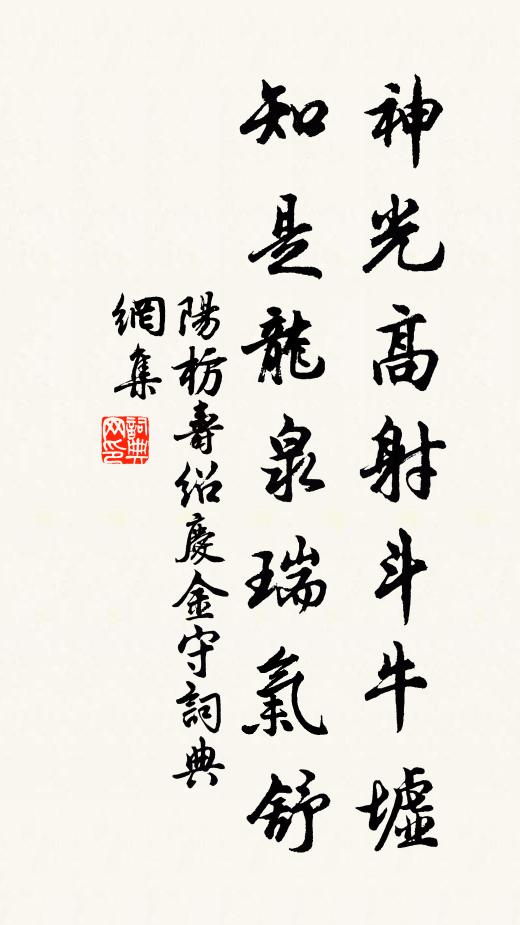 神光高射斗牛墟
知是龍泉瑞氣舒
陽枋壽紹慶金守詞典
網集
詞典
网印